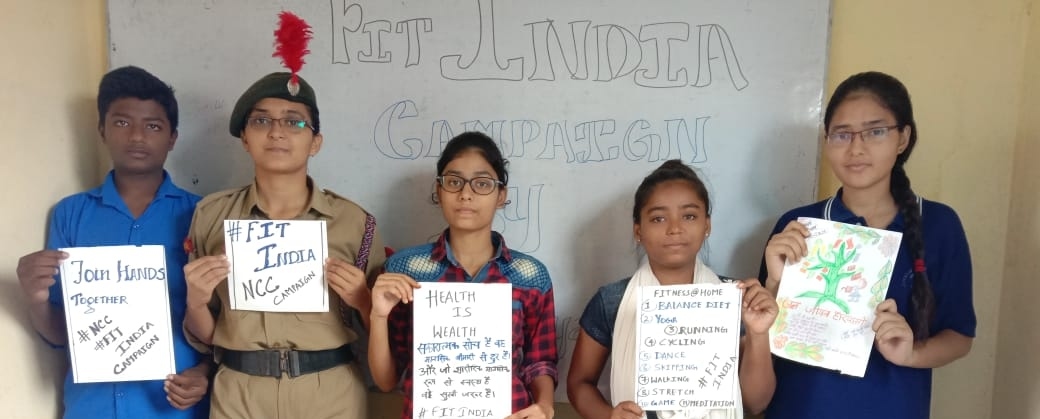 FIT INDIA
CAMPAIGN
JOIN HANDS
TOGETHER
#NCC
#FIT
INDIA
CAMPAIGN
#FIT
INDIA
NCC
CAMPAIGN
HEALTH
IS
WEALTH
सकारात्मक सोच है वह
मानसिक बीमारी से दूर है।
और जो शारीरिक मानसिक
रूप से स्वस्थ है
वही सुखी जरूर है।
#FIT INDIA
FITNESS@HOME
(1) BALANCE DIET
(2) YOGA
(3) RUNNING
(4) CYCLING
(5) DANCE
(6) SKIPPING
(7) WALKING
(8) STRETCH
(9) GAME (10) MEDITATION
#FIT
INDIA
जीवन